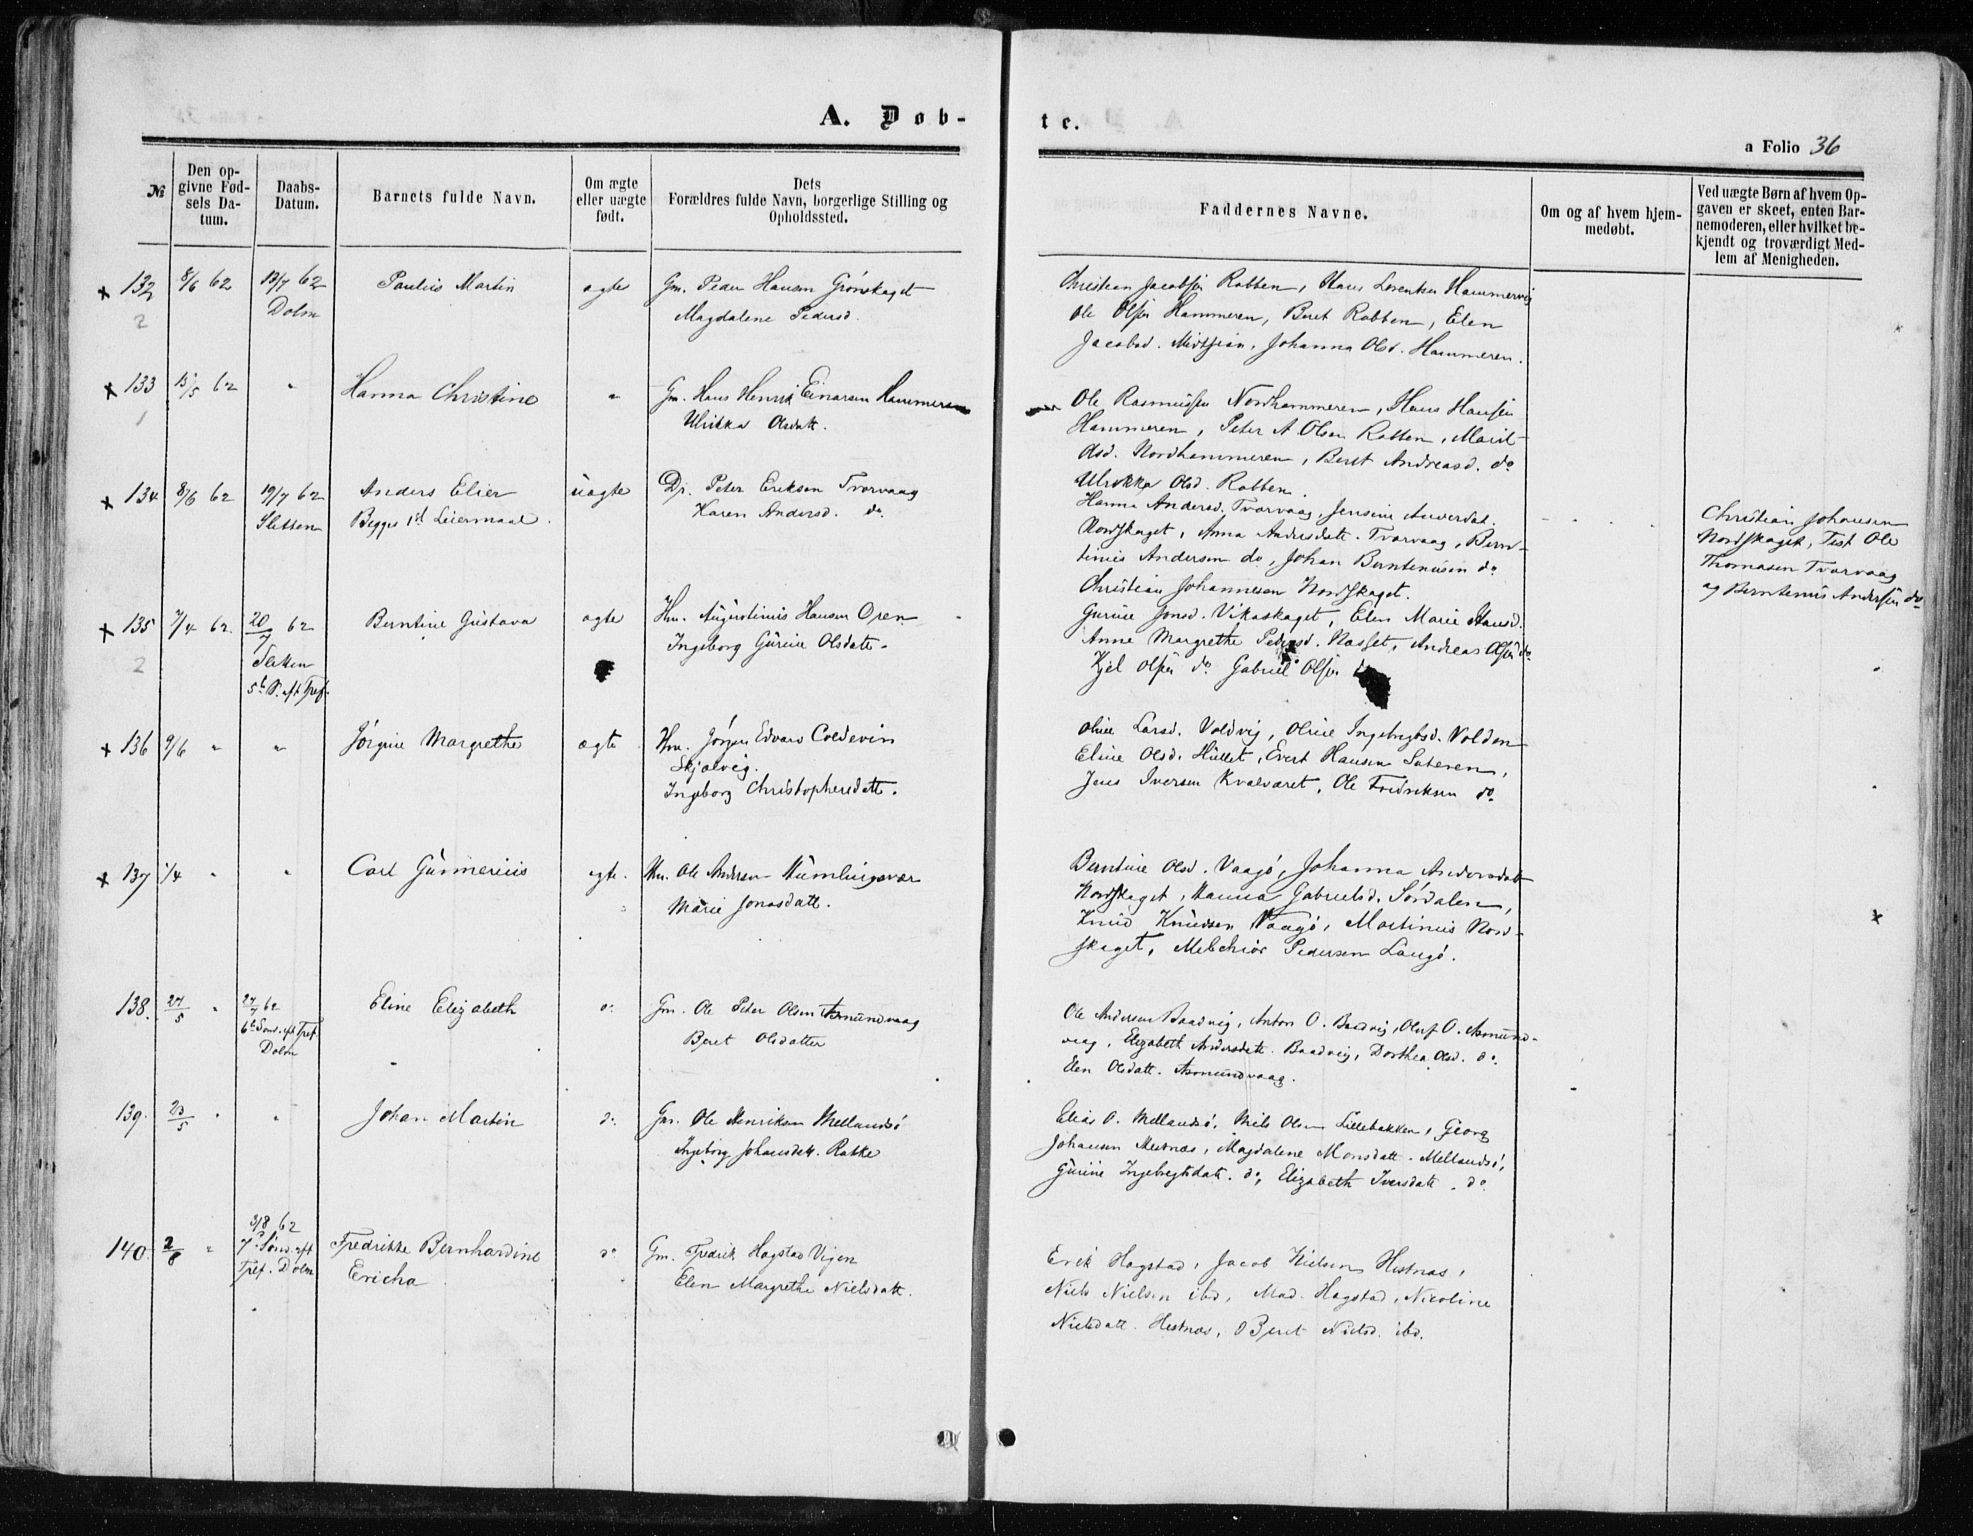 A. Døb-
te.
a Folio 36
№
Den op-
givne Fød-
sels Da-
tum.
Daabs-
Datum.
Barnets fulde Navn.
Om ægte
eller uægte
født.
Dets
Forældres fulde Navn, borgerlige Stilling og
Opholdssted.
Faddernes Navne.
Om og af hvem hjem-
medøbt.
Ved uægte Børn af hvem Op-
gaven er skeet, enten Bar-
nemoderen, eller hvilket be-
kjendt og troværdigt Med-
lem af Menigheden.
x 132 8/6 62 13/7 62 Paulus Martin ægte Gm. Peder Hansen Grønskaget
2 Dolm Magdalene Pedersd.
Christian Jacobsen Rabben, Hans Lorentsen Hammervig
Ole Olsen Hammeren, Beret Rabben, Elen
Jacobsd. , Johanna Olsd. Hammeren.
x 133 15/5 62 " Hanna Christine " Gm. Hans Henrik Einarsen Hammeren
1 Ulrikka Olsdatt.
Ole Rasmussen Nordhammeren, Hans Hansen
Hammeren, Peter A Olsen Rabben, Marit
Olsd. Nordhammeren, Beret Andreasd. do
Ulrikka Olsd. Rabben.
x 134 8/6 62 19/7 62 Anders Elier uægte Dr. Peter Eriksen Tvervaag
Sletten Begges 1st Leiermaal. Karen Andersd. do.
Hanna Andersd. Tvarvaag, Jensine
Nordskaget, Anna Andersdatt. Tvarvaag, Bern-
tinus Andersen do, Johan Berntinusen do
Christian Johannesen Nordskaget.
Christian Johansen
Nordskaget, Test Ole
Thomasen Tvarvaag
og Berntinus Andersen do
x 135 7/4 62. 20/7 62 Berntine Gustava ægte Hm. Augustinus Hansen Oren
2 Sletten Ingeborg Gurine Olsdatt.
5t S. eft Tref.
Gurine Jonsd. Vikaskaget, Elen Marie Hansd.
Anne Margrethe Pedersd. Nasset, Andreas Olsen do.
Kjel Olsen do. Gabriel Olsen
x 136 9/6 " " Jørgine Margrethe ægte Hm. Jørgen Edvard Coldevin
Skjalvig.
Ingeborg Christophersdatt.
Oline Larsd. Valdvig, Oline Ingebrigtsd. Volden
Eline Olsd. Hullet, Evert Hansen Sateren,
Jens Iversen Kvalvaret, Ole Fredriksen do.
x 137 1/4 " " Carl Gunnerius ægte. Hm. Ole Andersen Humlingsvær
Marie Jonasdatt.
Berntine Olsd. Vaagø, Johanna Andersdatt
Nordskaget, Hanna Gabrielsd. Sørdalen,
Knud Knudsen Vaagø, Martinus Nord-
skaget, Melchior Pedersen Langø.
x
138. 27/5 " 27/7 62 Eline Elizabeth do. Gm. Ole Peter Olsen Asmundvaag
6te Sønd. eft Tref. Beret Olsdatter
Dolm
Ole Andersen Baadvig, Anton O. Baadvig, Oluf O. Asmund-
vaag, Elizabeth Andersdatt. Baadvig, Dorthea Olsd. do.
Elen Olsdatt. Asmundvaag.
139. 23/5 " " Johan Martin do. Gm. Ole Henriksen Mellandsø
Ingeborg Johansdatt. Rabbe
Elias O. Mellandsø, Nils Olsen Lillebakken, Georg
Johansen Hestnæs, Magdalene Monsdatt. Mellandsø,
Gurine Ingebrigtsdatt. do, Elizabeth Iversdatt. do.
140. 2/6 " 3/8 62 Fredrikke Bernhardine do Gm. Fredrik Hagstad Vigen
7de Sønd. eft Ericha Elen Margrethe Nielsdatt.
Tref. Dolm
Erik Hagstad, Jacob Nielsen Hestnæs,
Niels Nielsen ibd, Mad. Hagstad, Nicoline
Nielsdatt. Hestnæs, Beret Nielsd. ibd.